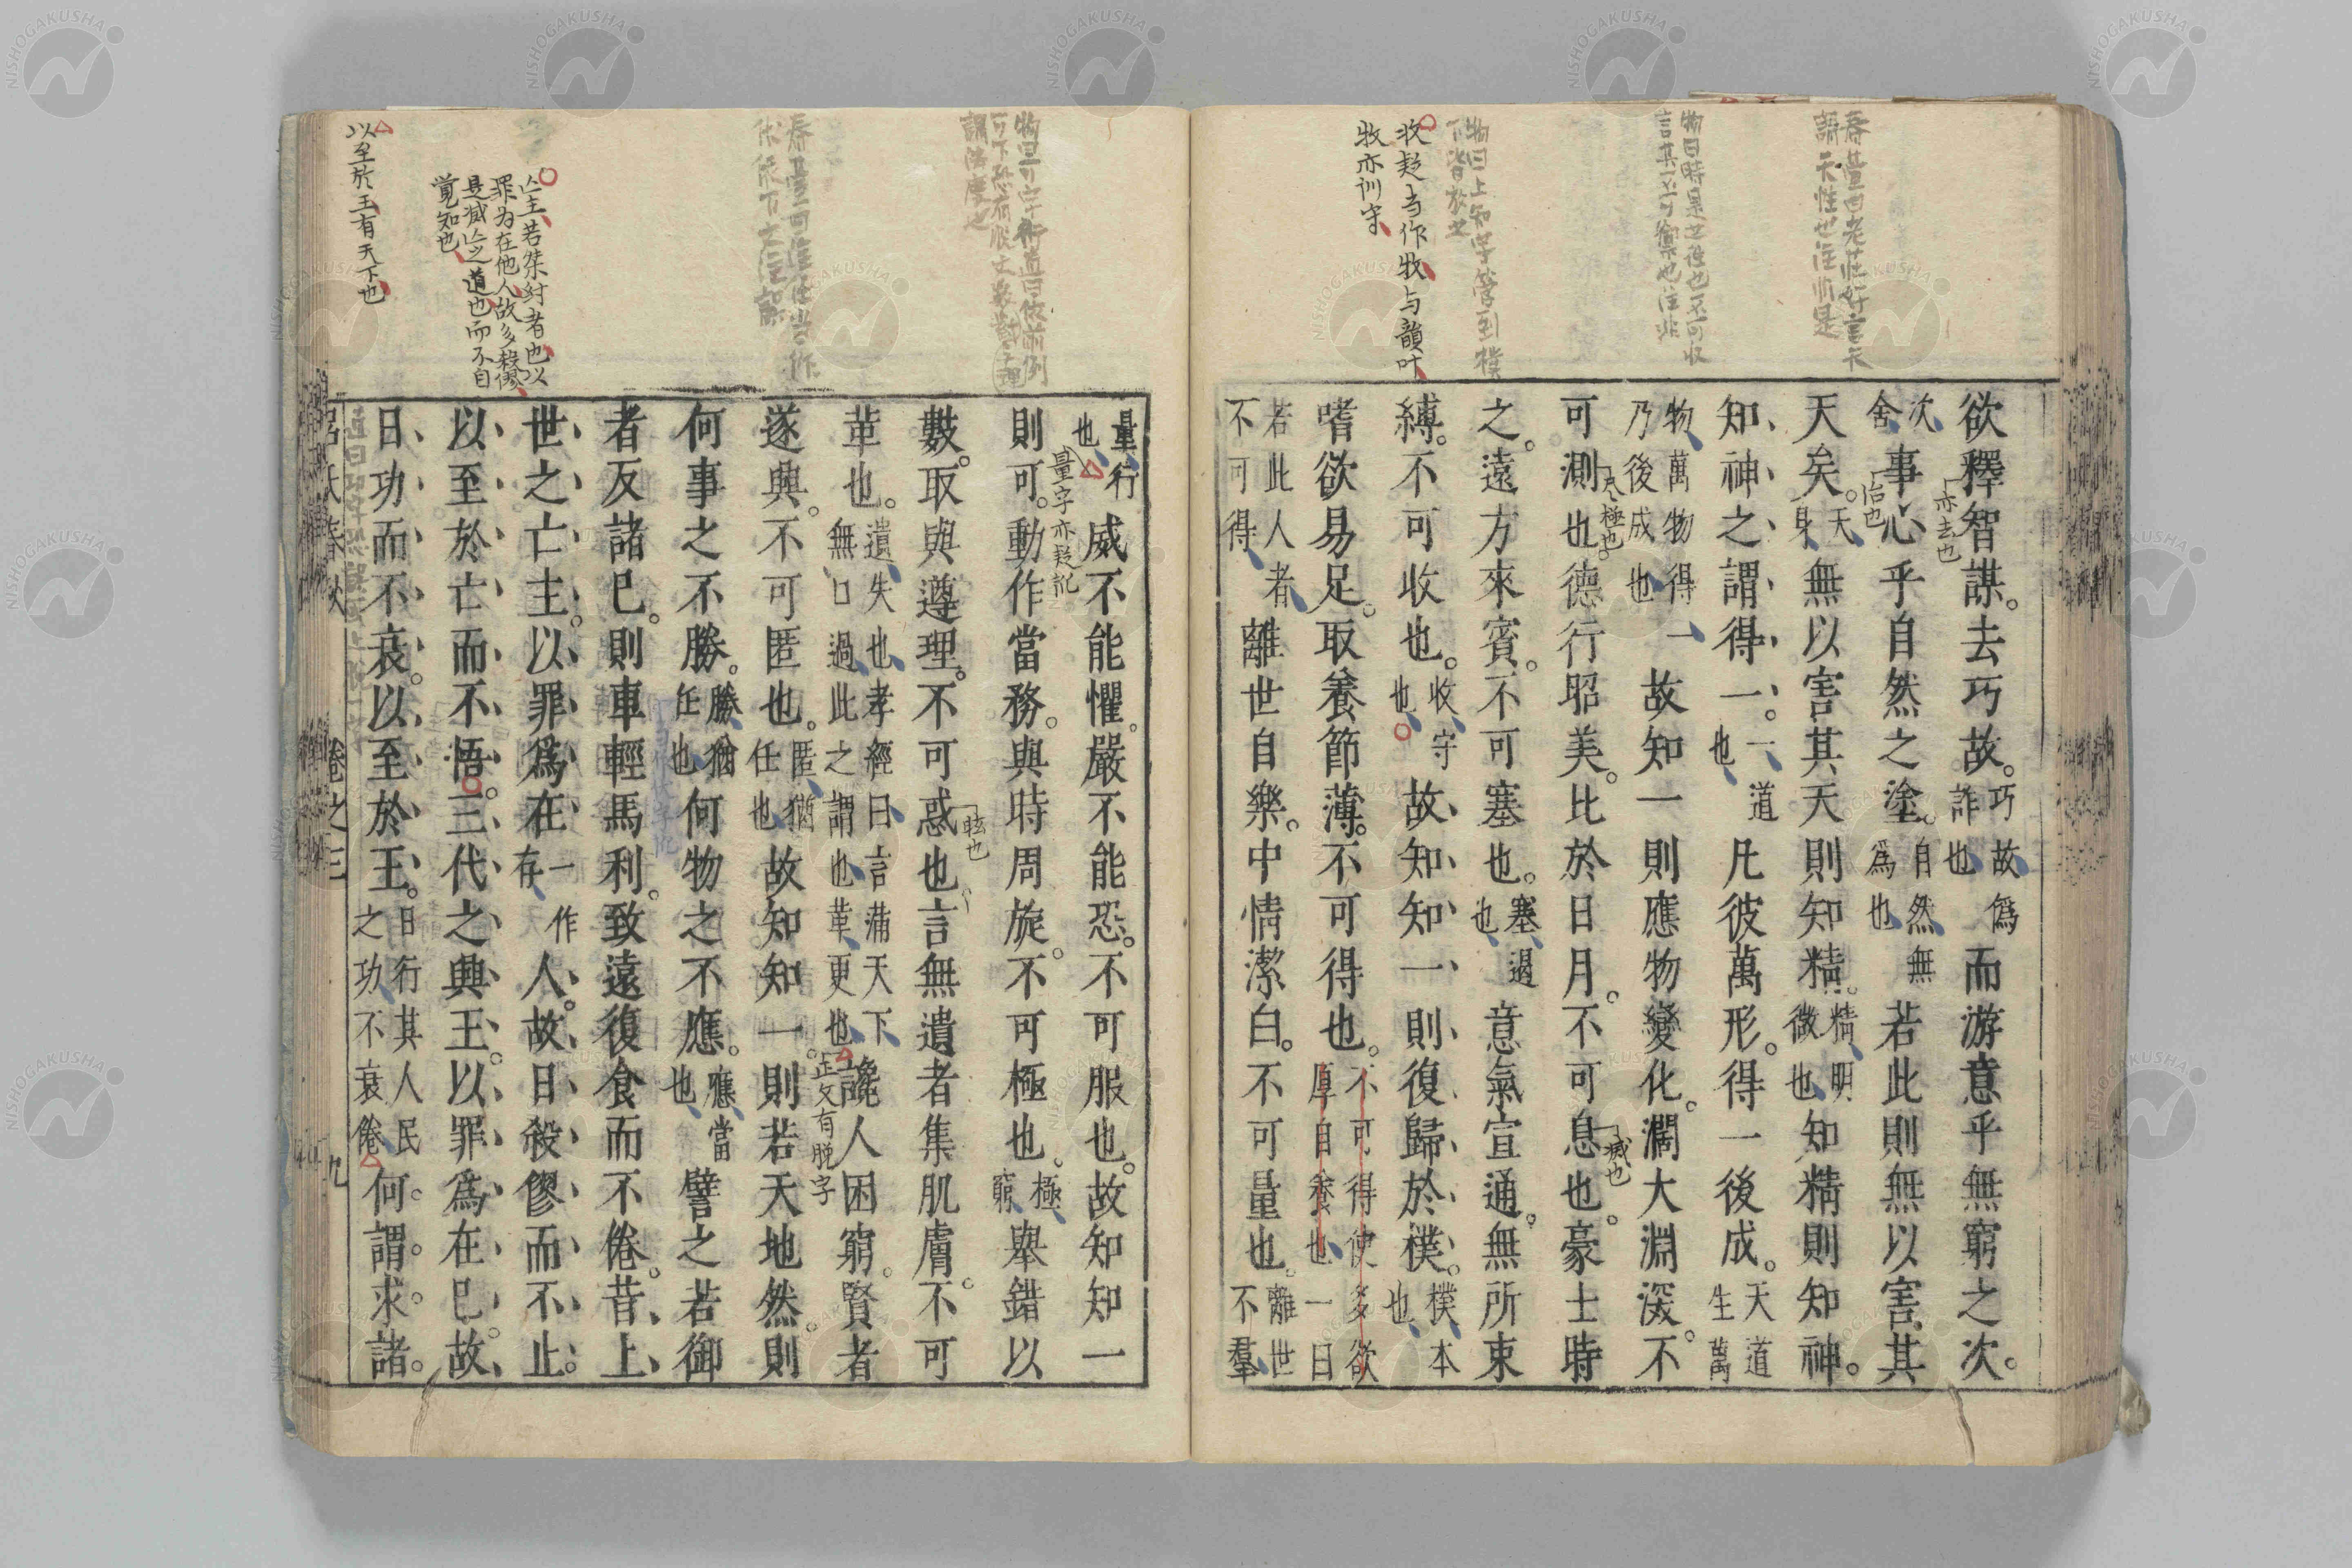 欲釋智謀去巧故巧故僞詐也而游意乎無窮之次
次舍事心乎自然之塗自然無爲也若此則無以害其
天矣天身無以害其天則知精精微明也知精則知神
知神之謂得一一道也凡彼萬形得一後成天道生萬
物萬物得一乃後成也故知一則應物變化濶大淵深不
可測也德行昭美比於日月不可息也豪士時
之遠方來賓不可塞也塞遏也意氣宣通無所束
縛不可收也收守也故知知一則復歸於樸樸本也
嗜欲易足取養節薄不可得也不可得使多欲厚自養也一曰
若此人者不可得離世自樂中情潔白不可量也離世不羣
量行也威不能懼嚴不能恐不可服也故知知一
則可動作當務與時周旋不可極也極窮舉錯以
數取與遵理不可惑也言無遺者集肌膚不可
革也遺失也無口過此孝經曰言蒲天下之謂也革更也讒人困窮賢者
遂興不可匿也匿猶任也故知知一則若天地然則
何事之不勝勝猶任也何物之不應應當也譬之若御
者反諸己則車輕馬利致遠復食而不倦昔上
世之亡主以罪爲在一作存人故日殺僇而不止
以至於亡而不悟三代之興王以罪爲在己故
日功而不衰以至於王日行其人民之功不衰倦何謂求諸
卷之三
九
亦去也
治也
尺極也
滅也
收疑当作牧与韻叶
牧亦训守
量字亦疑訛
眩也
正文有脱字
亡主若桀紂者也以
罪为在他人故多殺僇
是滅亡之道也而不自
覚知也
以至於王有天下也